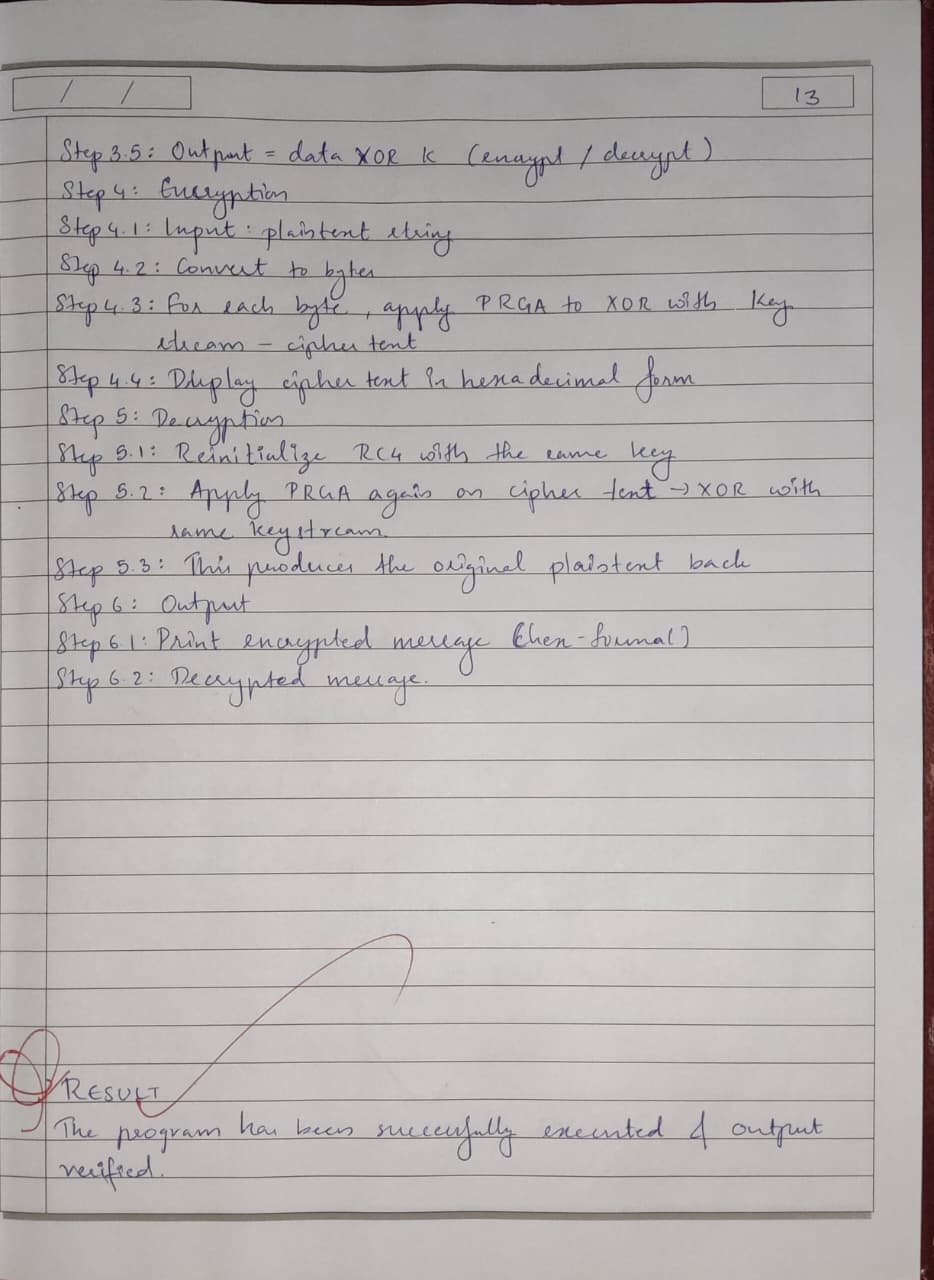 / /
13
Step 3.5: Output = data XOR K (encrypt / decrypt)
Step 4: Encryption
Step 4.1: Input: plaintext string
Step 4.2: Convert to bytes
Step 4.3: For each byte, apply PRGA to XOR with key
stream - cipher text
Step 4.4: Display cipher text in hexadecimal form
Step 5: Decryption
Step 5.1: Reinitialize RC4 with the same key
Step 5.2: Apply PRGA again on cipher text → XOR with
same keystream
Step 5.3: This produces the original plaintext back
Step 6: Output
Step 6.1: Print encrypted message (hex-format)
Step 6.2: Decrypted message.
RESULT
The program has been successfully executed & output
verified.